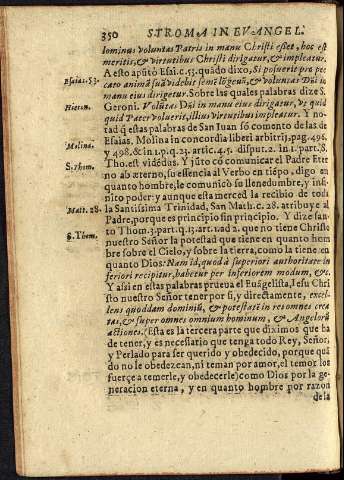 350 STROMA IN EVANGEL.
lominus voluntas Patris in manu Christi esset, hoc est
meritis, & virtutibus Christi dirigatur, & impleatur.
A esto apūtò Esai. c. 53. quādo dixo, Si posuerit pro pec
Esaias. 53.
cato animā suā videbit semē lōgeuū, & volūtas Dñi in
manu eius dirigetur. Sobre las quales palabras dize S.
Hieron.
Geroni. Volūtas Dñi in manu eius dirigetur, vt quid
quid Pater voluerit, illius virtutibus impleatur. Y no
tad q̄ estas palabras de San Iuan só comento de las de
Esaias. Molina in concordia liberi arbitrij, pag. 496.
Molina.
y 498. & in 1. p. q. 23. artic. 4. 5. disput. 2. in 1. part. S.
S. Thom.
Tho. est vidēdus. Y jūto cō comunicar el Padre Eter
no ab æterno, su essencia al Verbo en tiēpo, digo en
quanto hombre, le comunicò su llenedumbre, y infi
nito poder: y aunque esta merced la recibio de toda
Matt. 28.
la Santissima Trinidad, San Math. c. 28. atribuye al
Padre, porque es principio sin principio. Y dize san
S. Thom.
to Thom. 3. part. q. 13. art. 1. ad 2. que no tiene Christo
nuestro Señor la potestad que tiene en quanto hom
bre sobre el Cielo, y sobre la tierra, como la tiene en
quanto Dios: Nam id, quod à superiori authoritate in
feriori recipitur, habetur per inferiorem modum, &c.
Y assi en estas palabras prueua el Euāgelista, Iesu Chri
sto nuestro Señor tener por si, y directamente, excel-
lens quoddam dominiū, & potestatē in res omnes crea
tas, & super omnes omnium hominum, & Angelorū
actiones. (Esta es la tercera parte que diximos que ha
de tener, y es necessario que tenga todo Rey, Señor,
y Perlado para ser querido y obedecido, porque quā
do no le obedezcan, ni teman por amor, el temor los
fuerçe a temerle, y obedecerle) como Dios por la ge
neracion eterna, y en quanto hombre por razon
de la